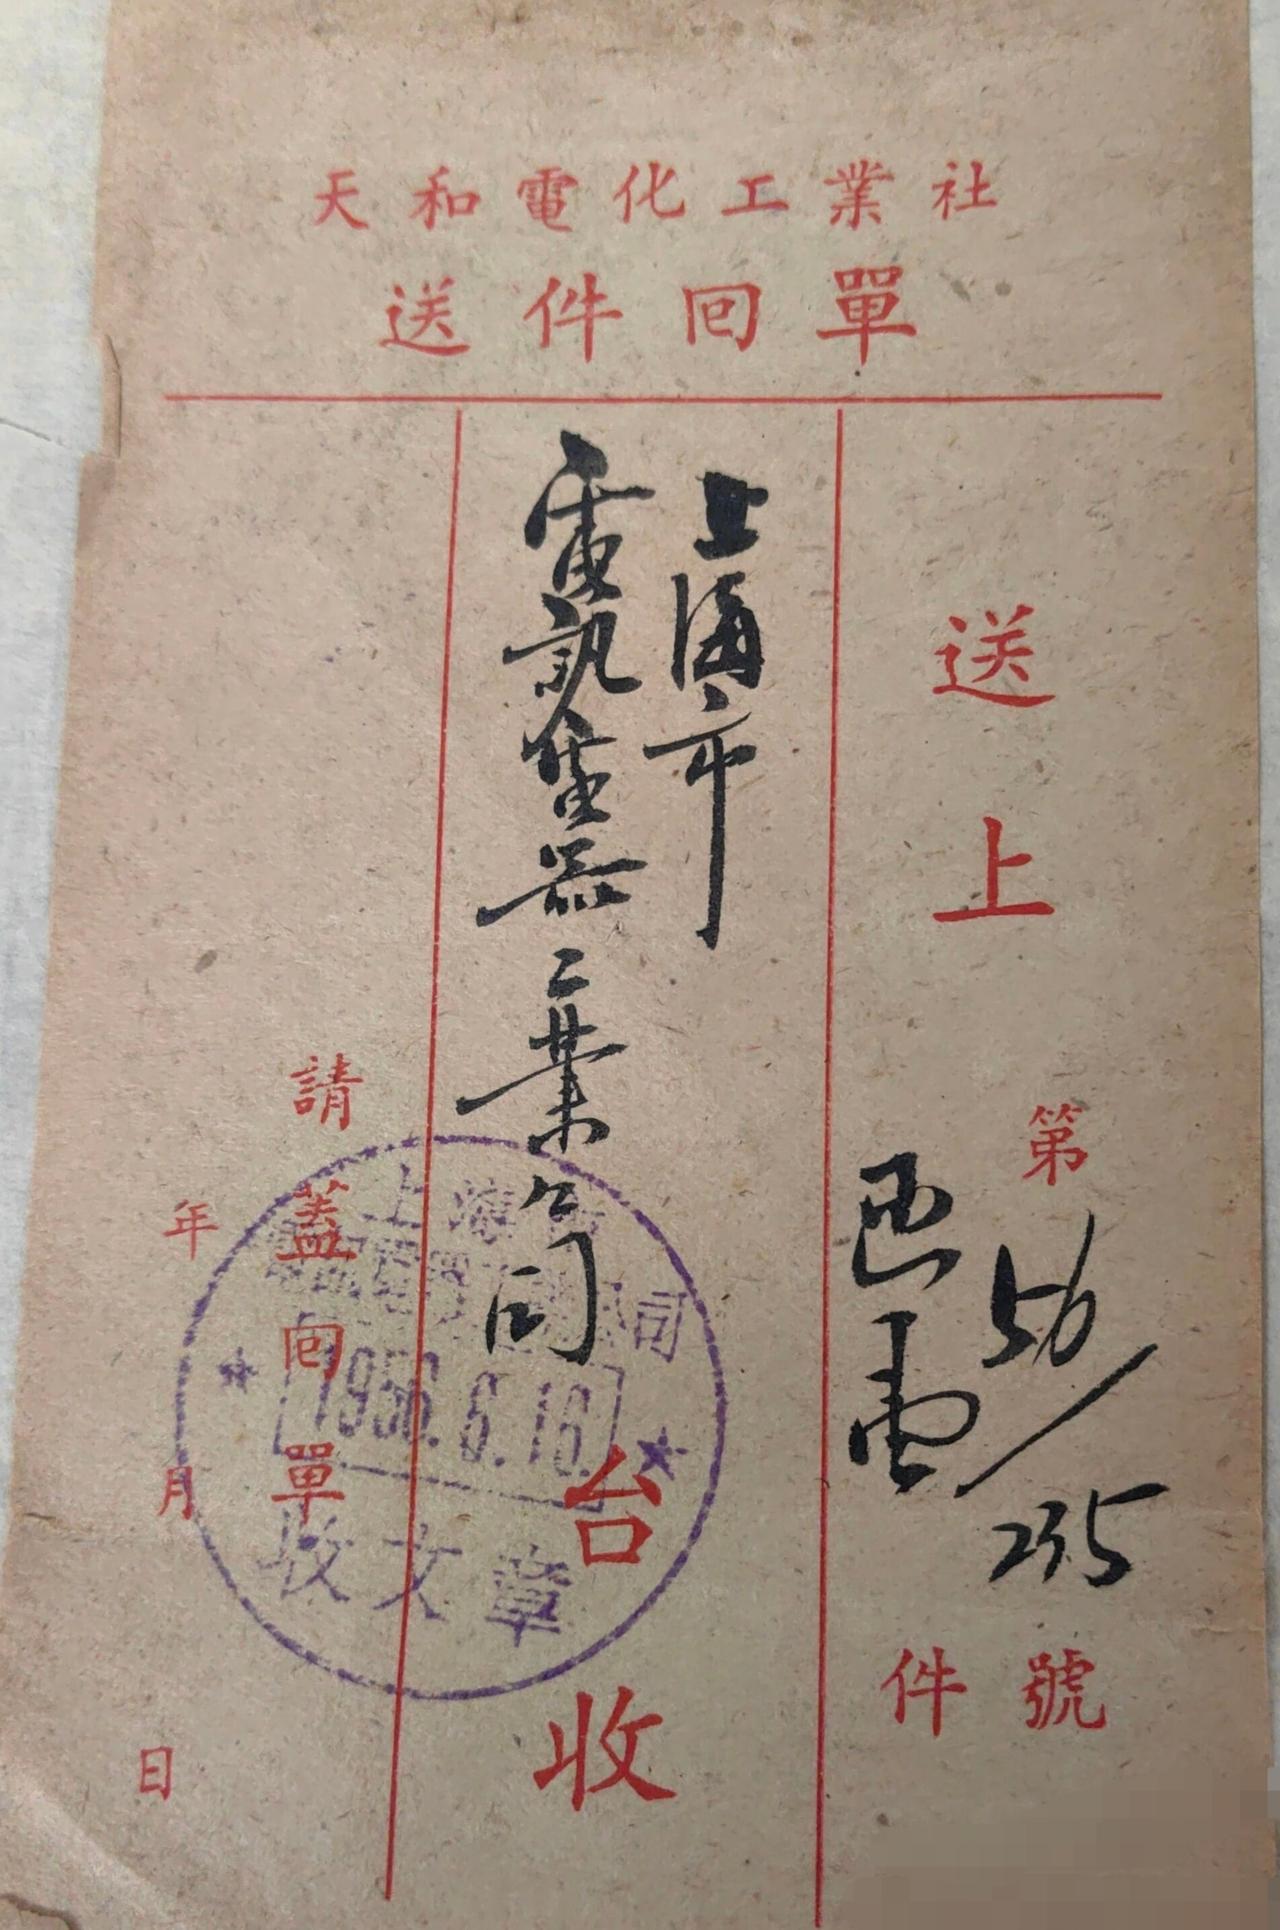 天和電化工業社
送件回單
送上
第56/235號
件
上海市
電訊電器工業公司
台收
請蓋回單
年月日
上海市
電訊電器工業公司
1956.6.16.
收文章